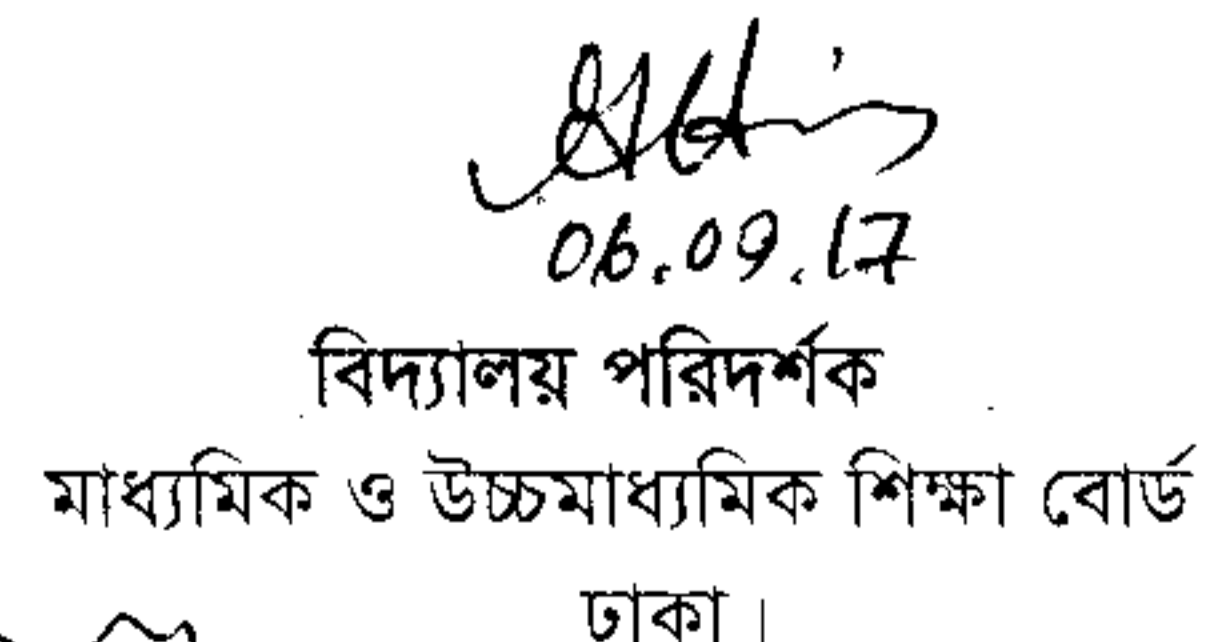 06.09.17
বিদ্যালয় পরিদর্শক
মাধ্যমিক ও উচ্চমাধ্যমিক শিক্ষা বোর্ড
ঢাকা।